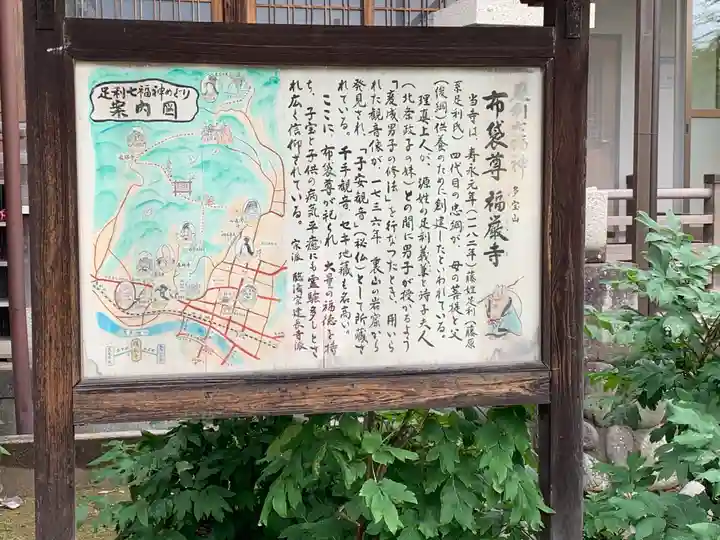 足利七福神 多宝山
布袋尊 福厳寺
当寺は、寿永元年(一一八二年)藤姓足利(藤原
系足利氏)四代目の忠綱が、母の菩提と父
(俊綱)供養のために創建したといわれている。
理真上人が、源姓の足利義兼と時子夫人
(北条政子の妹)との間に男子が授かるよう
「変成男子の修法」を行なったとき、用いら
れた観音像が一七三六年、裏山の岩窟から
発見され、「子安観音」(秘仏)として所蔵さ
れている。千手観音、セキ地蔵も名高い。
ここに、布袋尊が祀られ、大量の福徳を持
ち、子宝と子供の病気平癒にも霊験多しとさ
れ広く信仰されている。
宗派 臨済宗建長寺派
足利七福神めぐり
案内図